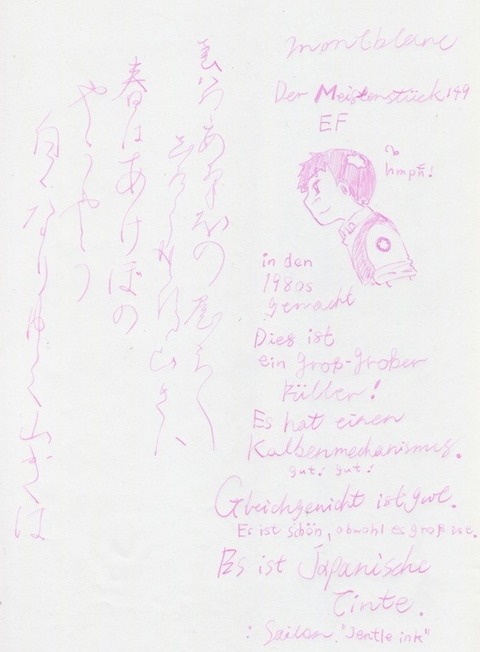 montblanc
Der Meisterstück 149
EF
in den
1980s
gemacht
Dies ist
ein groß-großer
Füller!
Es hat einen
Kolbenmechanismus.
gut! gut!
Gleichgewicht ist gut.
Es ist schön, obwohl es groß ist.
Es ist Japanische
Tinte.
: Sailor. "Jentle ink"
春はあけぼの
やうやう
白くなりゆく山ぎは